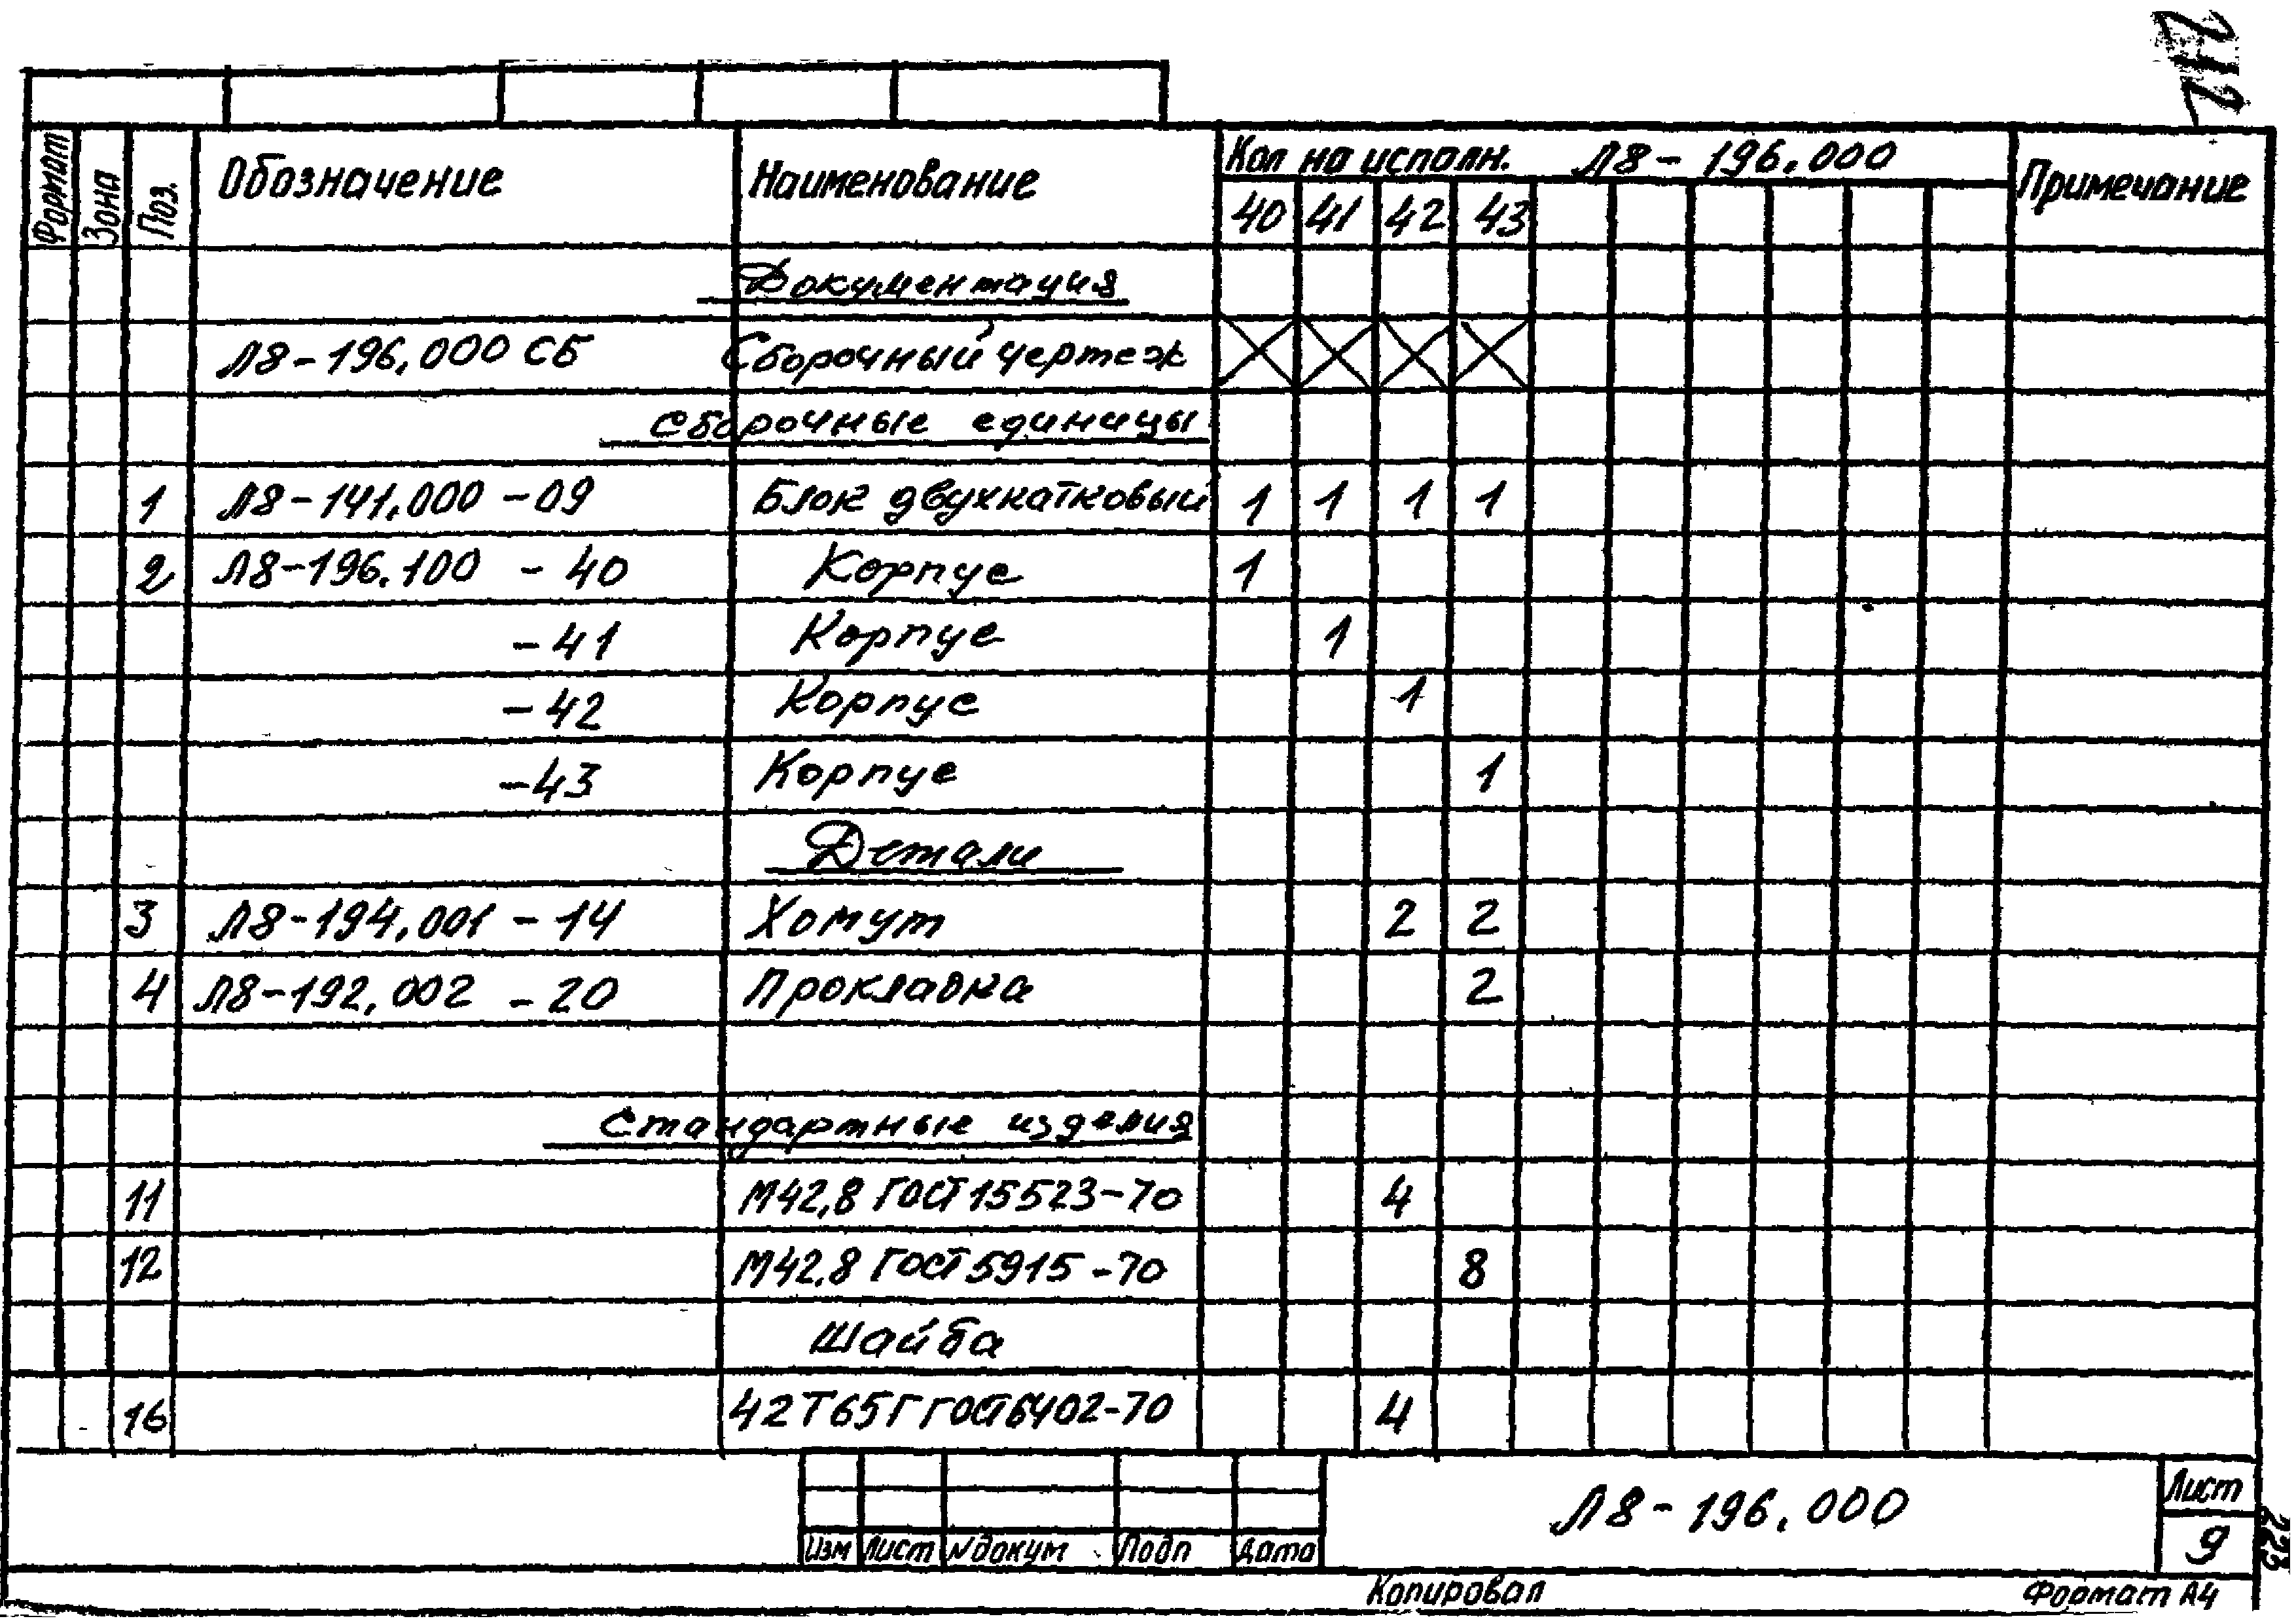 212
Формат Зона Поз. Обозначение Наименование Кол на исполн. Л8-196.000 Примечание
40 41 42 43
Документация
Л8-196.000 СБ Сборочный чертеж
Сборочные единицы
1 Л8-141.000-09 Блок двухкатковый 1 1 1 1
2 Л8-196.100 -40 Корпус 1
-41 Корпус 1
-42 Корпус 1
-43 Корпус 1
Детали
3 Л8-194.001-14 Хомут 2 2
4 Л8-192.002 -20 Прокладка 2
Стандартные изделия
11 М42.8 ГОСТ 15523-70 4
12 М42.8 ГОСТ 5915-70 8
Шайба
16 42Т65Г ГОСТ6402-70 4
Л8-196.000 Лист
Изм Лист №докум Подп Дата 9
223
Копировал Формат А4